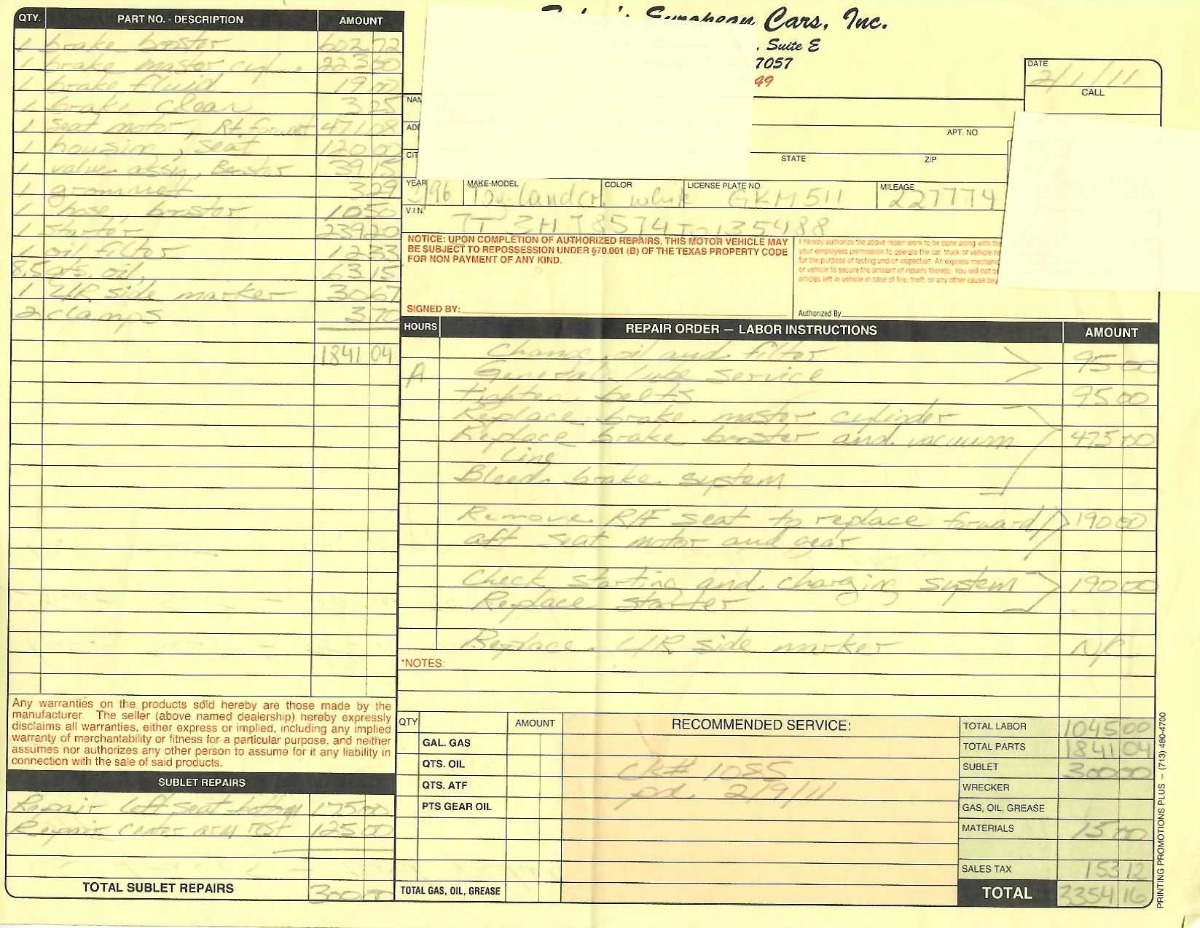 Cars, Inc.
, Suite E
7057
99
DATE 2/1/11
CALL
QTY. PART NO. - DESCRIPTION AMOUNT
1 brake booster 602 72
1 brake master cyl. 223 50
1 brake fluid 19 00
1 brake clean 3 25
1 seat motor, Rt. 471 08
1 housin, seat 120 00
1 valve assy, Booster 39 15
1 grommet 3 29
1 hose, booster 10 50
1 starter 239 20
1 oil filter 12 33
8.5 qts. oil, 63 15
1 L/R side marker 30 67
2 clamps 3 70
1841 04
APT. NO.
STATE ZIP
YEAR 96 MAKE-MODEL COLOR white LICENSE PLATE NO GKM 511 MILEAGE 227774
V.I.N.
NOTICE: UPON COMPLETION OF AUTHORIZED REPAIRS, THIS MOTOR VEHICLE MAY
BE SUBJECT TO REPOSSESSION UNDER §70.001 (B) OF THE TEXAS PROPERTY CODE
FOR NON PAYMENT OF ANY KIND.
SIGNED BY:
I hereby authorize the above repair work to be done along with the
your employees permission to operate the car, truck or vehicle
for the purpose of testing and/or inspection. An express mechanic
or vehicle to secure the amount of repairs thereto. You will not be
articles left in vehicle in case of fire, theft, or any other cause bey
Authorized By
HOURS REPAIR ORDER — LABOR INSTRUCTIONS AMOUNT
Change oil and filter 95 00
A General lube service
tighten belts 95 00
Replace brake master cylinder
Replace brake booster and vacuum 475 00
line
Bleed brake system
Remove R/F seat to replace forward/ 190 00
aft seat motor and gear
Check starting and charging system 190 00
Replace starter
Replace L/R side marker N/C
*NOTES:
Any warranties on the products sold hereby are those made by the
manufacturer. The seller (above named dealership) hereby expressly
disclaims all warranties, either express or implied, including any implied
warranty of merchantability or fitness for a particular purpose, and neither
assumes nor authorizes any other person to assume for it any liability in
connection with the sale of said products.
SUBLET REPAIRS
Repair left seat 175 00
Repair center arm rest 125 00
TOTAL SUBLET REPAIRS 300 00
QTY AMOUNT
GAL. GAS
QTS. OIL
QTS. ATF
PTS GEAR OIL
TOTAL GAS, OIL, GREASE
RECOMMENDED SERVICE:
ck# 1085
pd. 2/9/11
TOTAL LABOR 1045 00
TOTAL PARTS 1841 04
SUBLET 300 00
WRECKER
GAS, OIL, GREASE
MATERIALS 15 00
SALES TAX 153 12
TOTAL 3354 16
PRINTING PROMOTIONS PLUS — (713) 480-4700